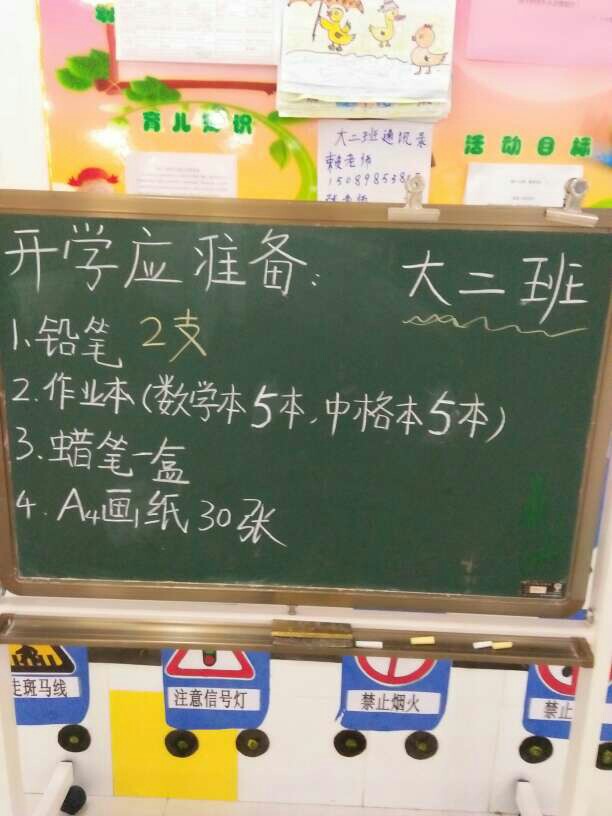 育儿知识
大二班通讯录
活动目标
开学应准备: 大二班
1.铅笔 2支
2.作业本(数学本5本,中格本5本)
3.蜡笔一盒
4.A4画纸30张
走斑马线
注意信号灯
禁止烟火
禁止